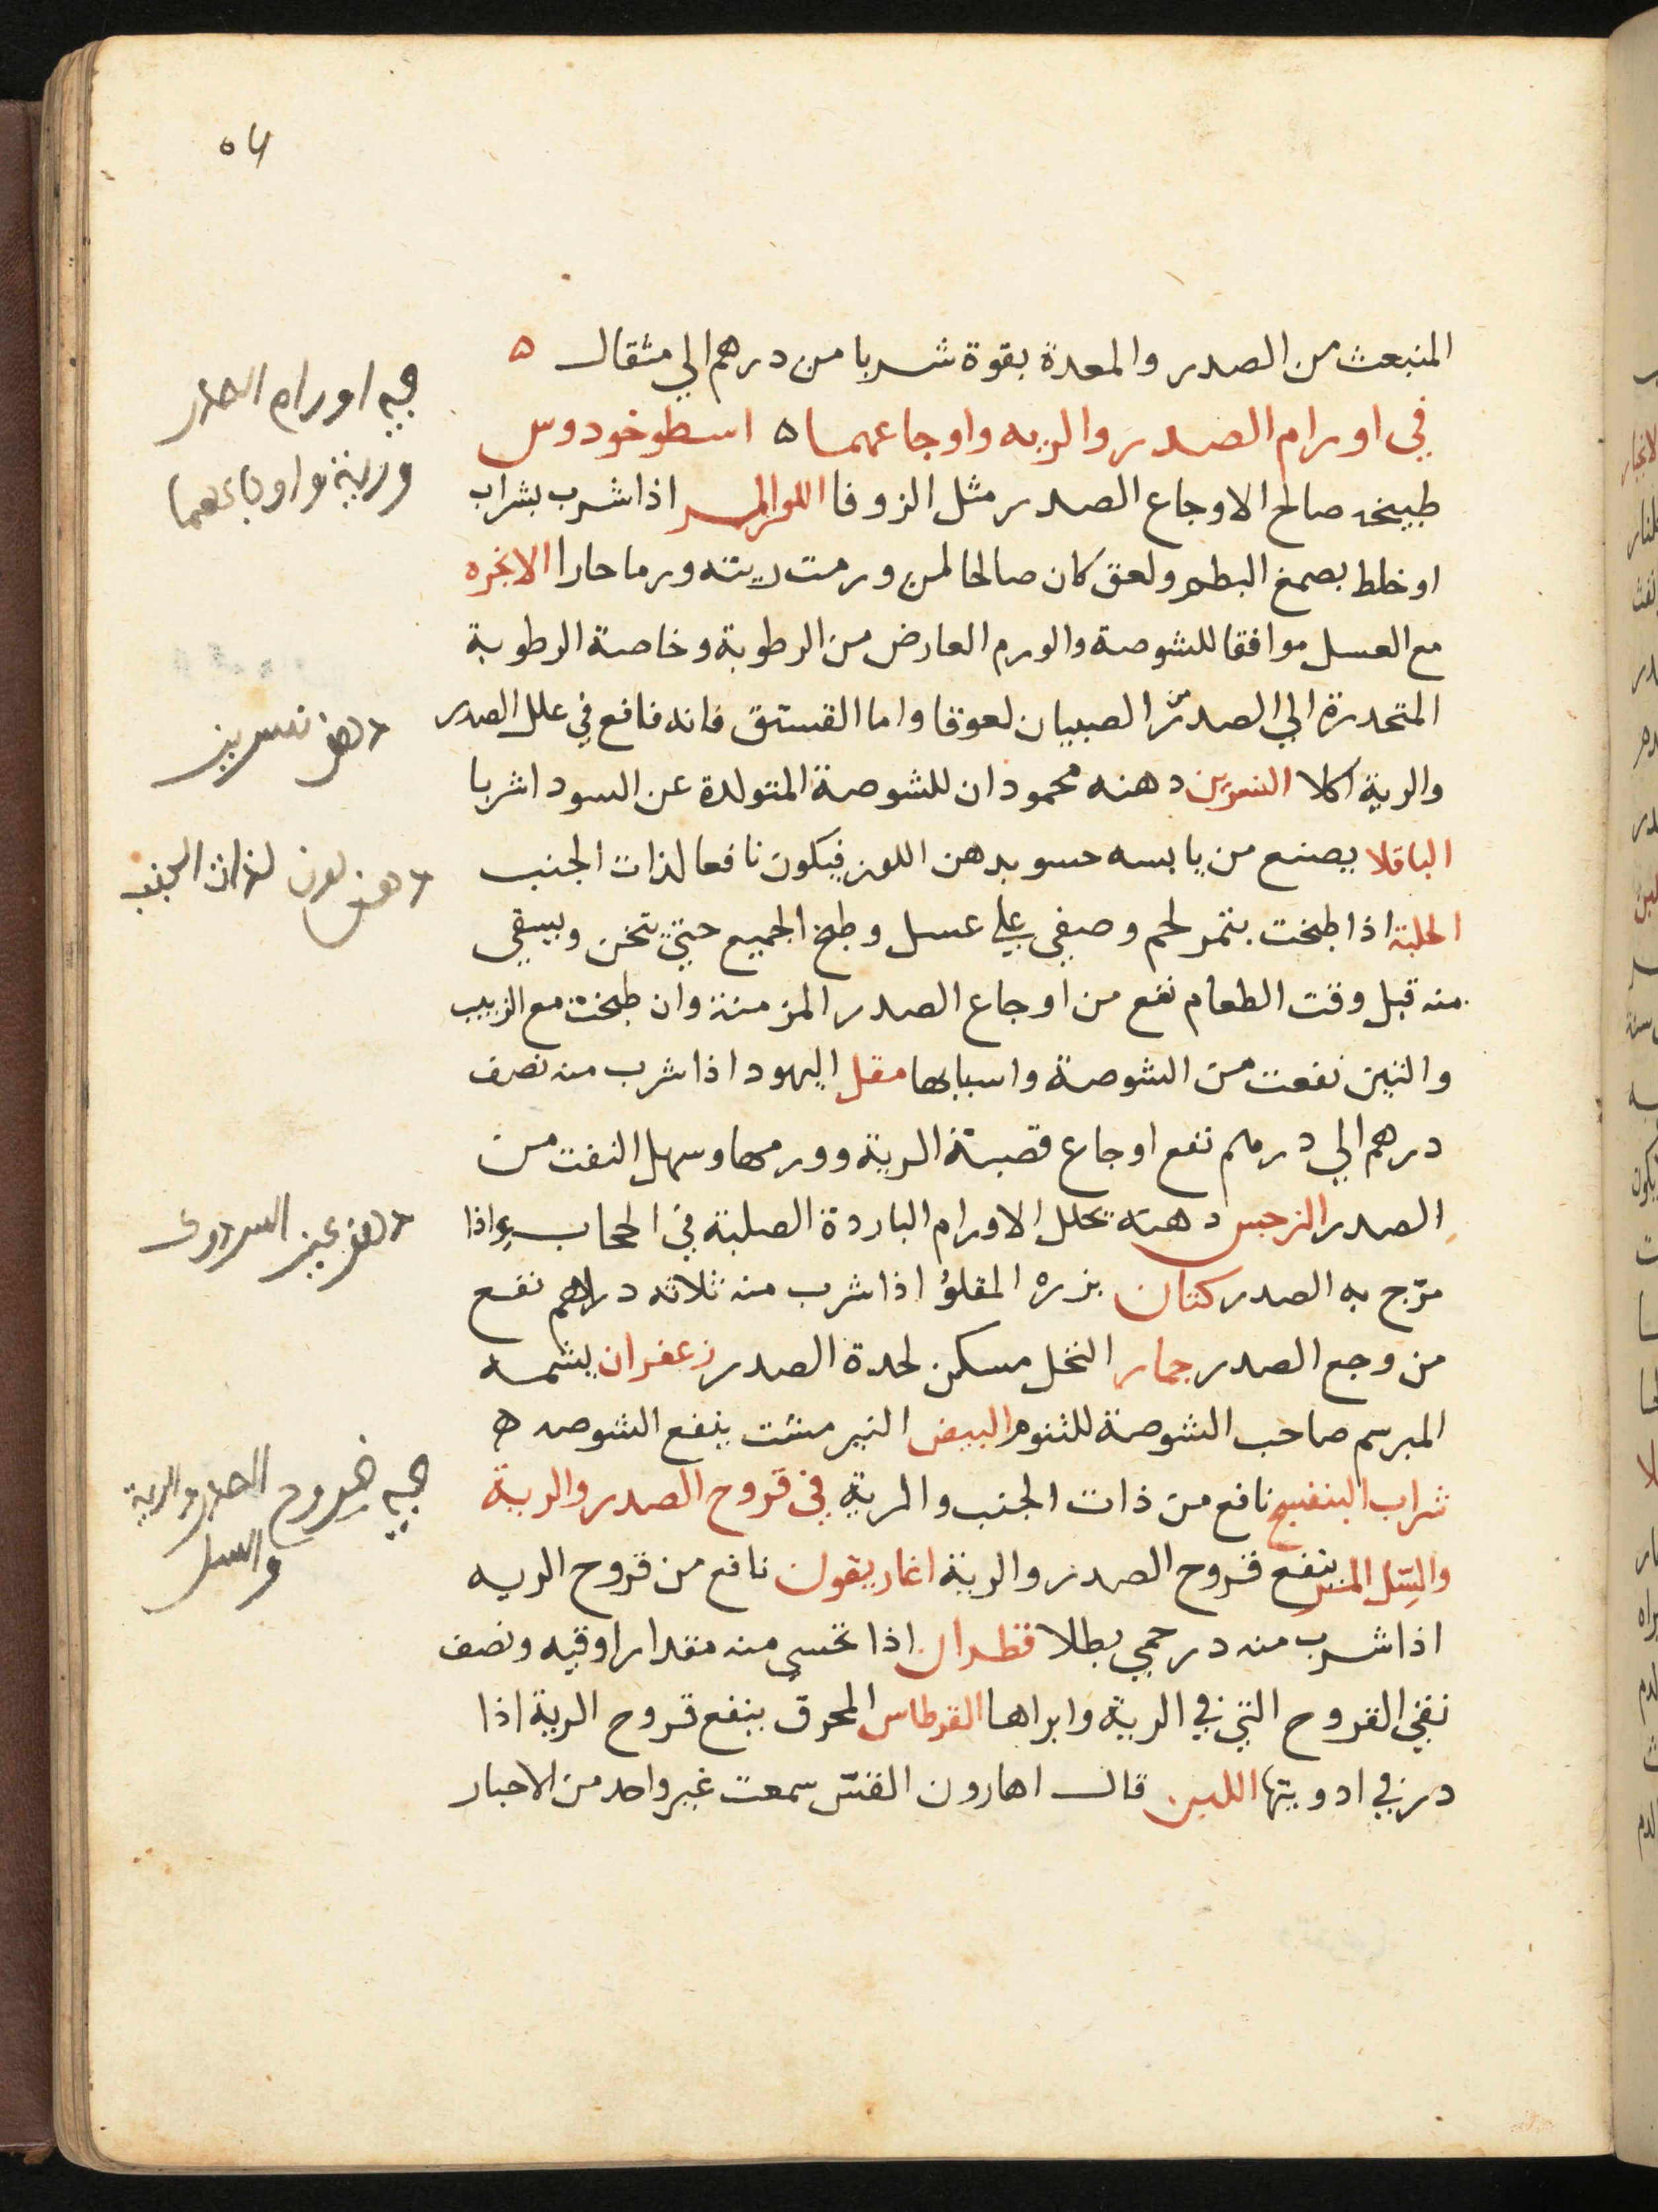 المنبعث من الصدر والمعدة بقوة شربا من درهم الي مثقال ه
في اورام الصدر والريه واوجاعهما ه اسطوخودوس
طبيخه صالح الاوجاع الصدر مثل الزوفا اللوز المر اذا شرب بشراب
او خلط بصمغ البطم ولعق كان صالحا لمن ورمت ريته ورما حارا الانجره
مع العسل موافقا للشوصة والورم العارض من الرطوبة وخاصة الرطوبة
المتحدرة الي الصدر الصبيان لعوقا واما الفستق فانه نافع في علل الصدر
والرية اكلا النسرين دهنه محمودان للشوصة المتولدة عن السودا شربا
الباقلا يصنع من يابسه حسو بدهن اللوز فيكون نافعا لذات الجنب
الحلبة اذا طبخت بتمر لحم وصفي علي عسل وطبخ الجميع حتي تخن ويسقي
منه قبل وقت الطعام نفع من اوجاع الصدر المزمنة وان طبخت مع الزبيب
والتين نفعت من الشوصة واسبابها مقل اليهود اذا شرب منه نصف
درهم الي درهم نفع اوجاع قصبة الرية وورمها وسهل النفث من
الصدر النرجس دهنه يحلل الاورام الباردة الصلبة في الحجاب واذا
مرج به الصدر كتان بزره المقلو اذا شرب منه ثلاثه دراهم نفع
من وجع الصدر جمار النخل مسكن لحدة الصدر زعفران يشمه
المبرسم صاحب الشوصة للتنوم البيض النيمرشت ينفع الشوصه ه
شراب البنفسج نافع من ذات الجنب والرية في قروح الصدر والرية
والسل المر ينفع قروح الصدر والرية اغاريقون نافع من قروح الريه
اذا شرب منه درخمي بطلا قطران اذا تحسي منه مقدار اوقيه ونصف
نقي القروح التي في الرية وابراها القرطاس المحرق ينفع قروح الرية اذا
در في ادويتها اللبن قال اهارون القس سمعت غير واحد من الاحبار
اورام الصدر
ورية واوجاعهما
دهن نسرين
دهن لوز لذات الجنب
دهن
قروح الصدر والرية
والسل